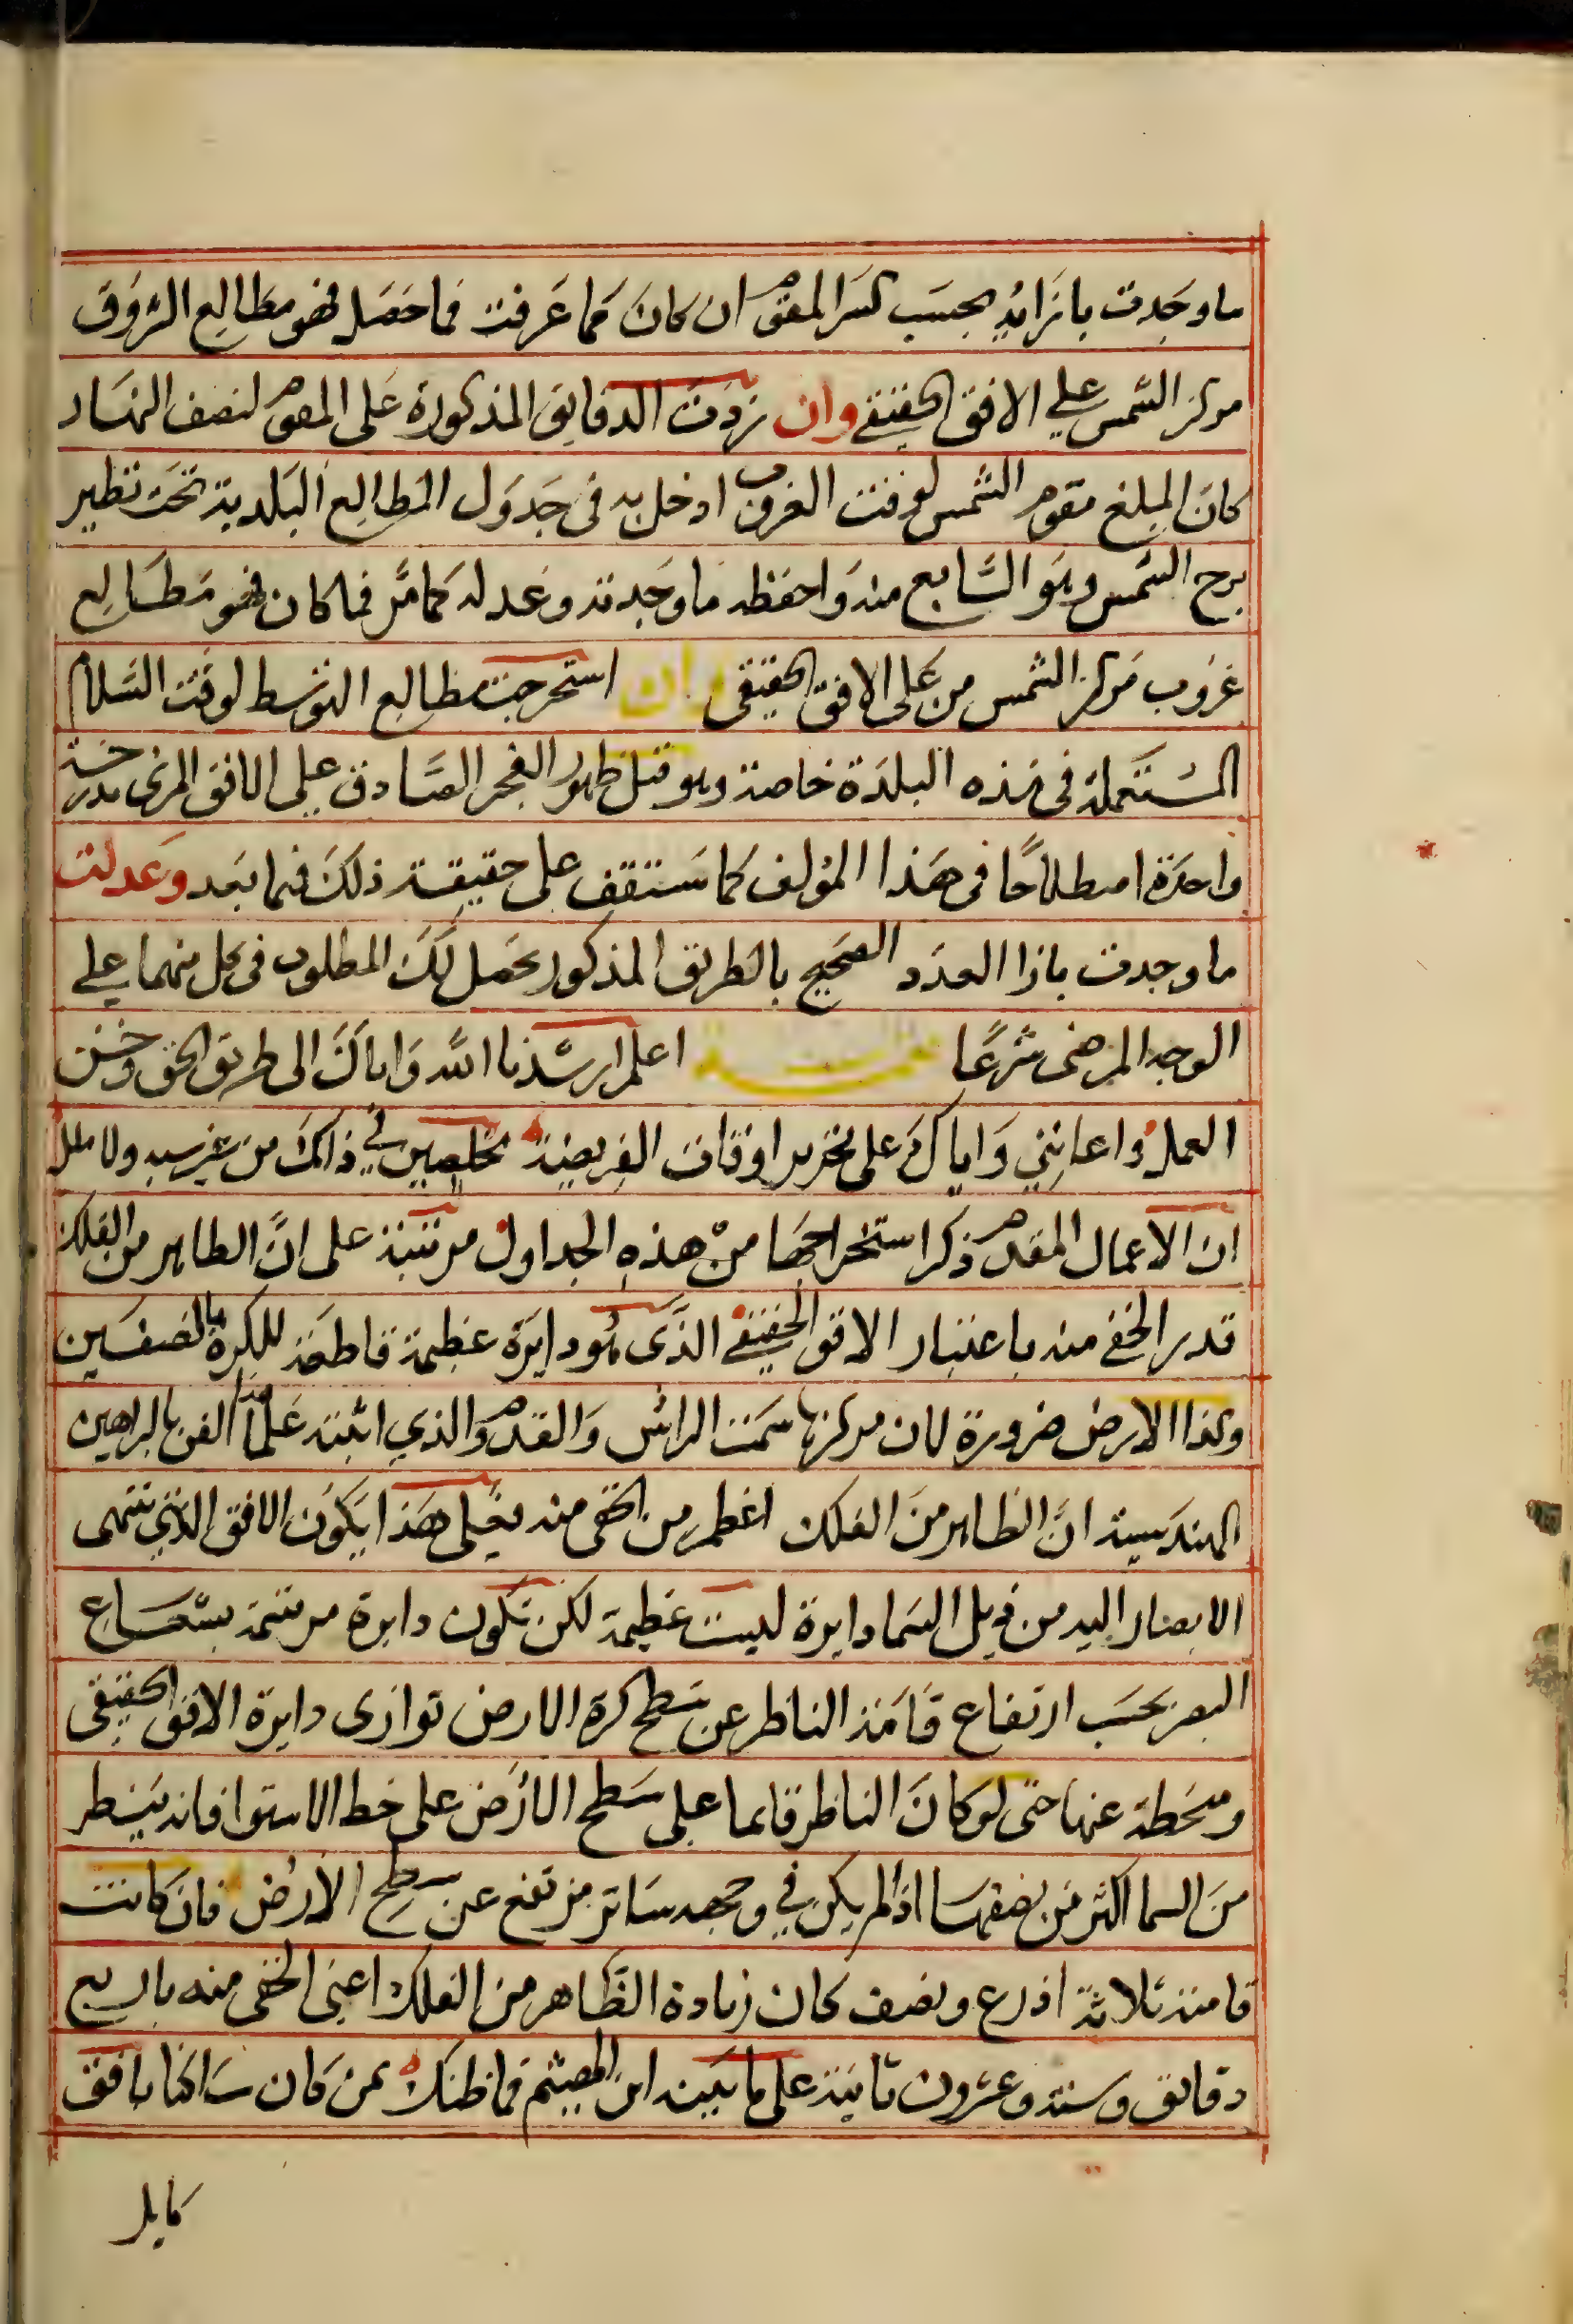 ما وجدت بازايه بحسب كسر المقوم ان كان كما عرفت فما حصل فهو مطالع الشروق
مركز الشمس على الافق الحقيقي وان زدت الدقايق المذكورة على المقوم لنصف النهار
كان المبلغ مقوم الشمس لوقت الغروب ادخل به في جدول المطالع البلدية تحت نظير
برج الشمس وهو السابع منه واحفظ ما وجدته وعدله كما مر فما كان فهو مطالع
غروب مركز الشمس من على الافق الحقيقي وان استخرجت مطالع التوسط لوقت السلام
المستعملة في هذه البلدة خاصة وهو قبل ظهور الفجر الصادق على الافق المرى بدرجة
واحدة اصطلاحًا في هذا المؤلف كما ستقف على حقيقة ذلك فيما بعد وعدلت
ما وجدت بازا العدد الصحيح بالطريق المذكور يحصل لك المطلوب في كل منهما على
الوجه المرضى شرعًا تتمـــة اعلم ارشدنا الله واياك الى طريق الحق وحسن
العمل واعانني واياك على تحرير اوقات الفريضة مخلصين في ذلك من غير ولا ملل
ان الاعمال المقدم ذكر استخراجها من هذه الجداول مرتبة على ان الظاهر من الفلك
قدر الخفي منه باعتبار الافق الحقيقي الذي هو دايرة عظيمة قاطعة للكرة بالنصفين
وكذا الارض ضرورة لان مركزها سمت الراس والقدم والذي اثبته علما هذا الفن بالبراهين
الهندسية ان الظاهر من الفلك اعظم من الخفى منه فعلى هذا يكون الافق الذي تنتهى
الابصار اليه من قبل السما دايرة ليست عظيمة لكن تكون دايرة مرتسمة بشعاع
البصر بحسب ارتفاع قامة الناظر عن سطح كرة الارض توازى دايرة الافق الحقيقى
ومنحطة عنها حتى لو كان الناظر قايما على سطح الارض على خط الاستوا فانه ينظر
من السما اكثر من نصفها اذا لم يكن في وجهه ساتر مرتفع عن سطح الارض فان كانت
قامته ثلاثة اذرع ونصف كان زيادة الظاهر من الفلك اعنى الخفى منه باربع
دقايق وستة وعشرون ثانية على ما بينه ابن الهيثم فما ظنك بمن كان ساكنا بافق
مايل